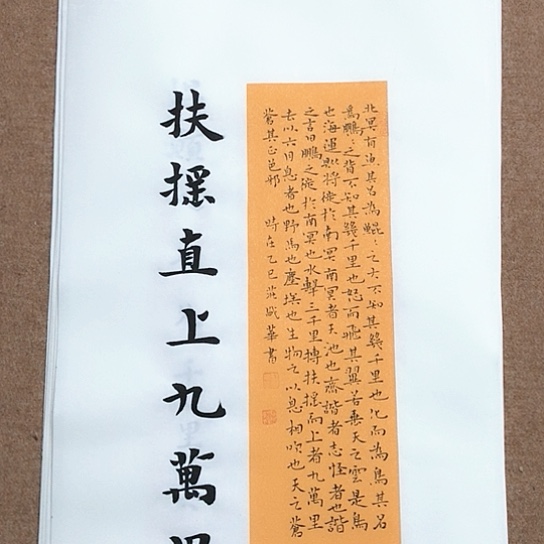 北冥有魚其名為鯤〻之大不知其幾千里也化而為鳥其名
為鵬〻之背不知其幾千里也怒而飛其翼若垂天之雲是鳥
也海運則將徙於南冥南冥者天池也齊諧者志怪者也諧
之言曰鵬之徙於南冥也水擊三千里摶扶搖而上者九萬里
去以六月息者也野馬也塵埃也生物之以息相吹也天之蒼
蒼其正色邪 時在乙巳 書
扶搖直上九萬里